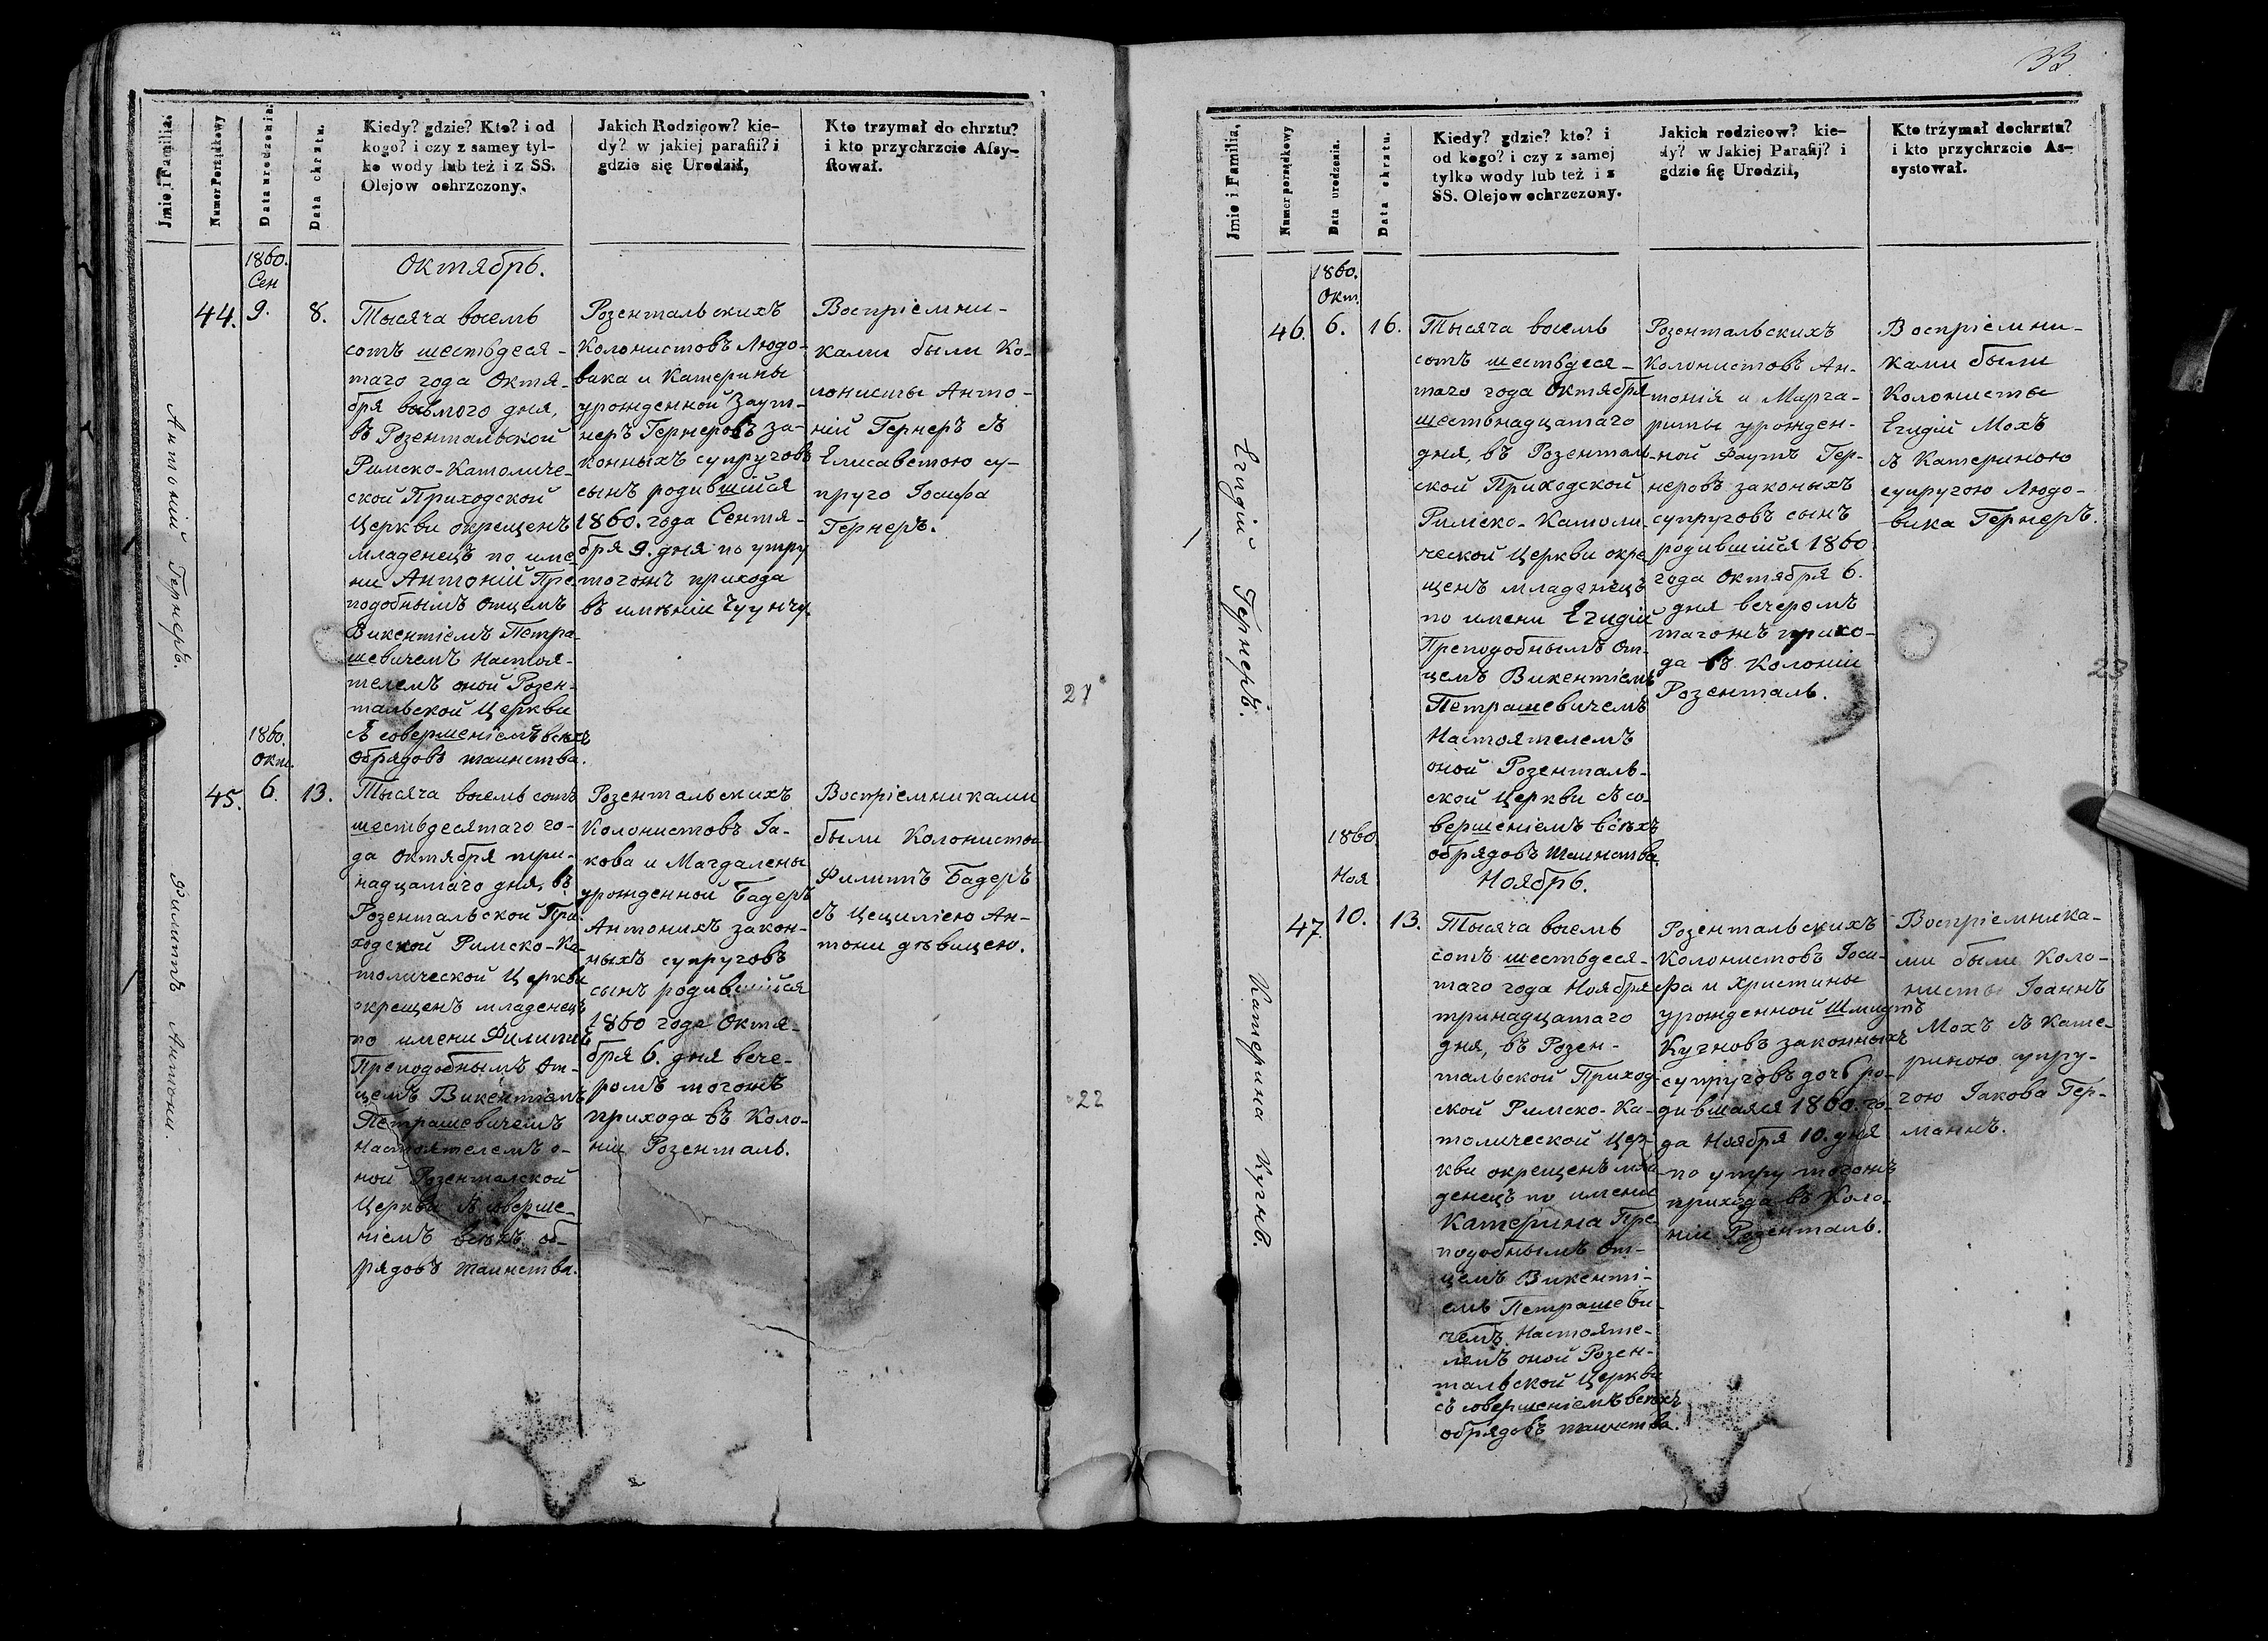 Jmie i Familia.
Numer Porządkowy
Data urodzenia.
Data chrztu.
Kiedy? gdzie? Kto? i od
kogo? i czy z samey tyl-
ko wody lub też i z SS.
Olejow ochrzczony.
Jakich Rodzicow? kie-
dy? w jakiej parafii? i
gdzie się Urodził,
Kto trzymał do chrztu?
i kto przychrzcie Afsy-
stował.
Антоній Гернеръ.
1860.
Сен
44. 9. 8.
Октябрь.
Тысяча восемь
сотъ шестьдеся-
таго года Октя-
бря восьмого дня,
въ Розентальской
Римско-Католиче-
ской Приходской
Церкви окрещенъ
младенецъ по име-
ни Антоній Пре-
подобнымъ Отцемъ
Викентіемъ Петра-
шевичемъ Настоя-
телемъ оной Розен-
тальской Церкви
съ совершеніемъ всѣхъ
обрядовъ таинства.
Розентальскихъ
Колонистовъ Людо-
вика и Катерины
урожденной Заут-
неръ Гернеровъ за-
конныхъ супруговъ
сынъ родившійся
1860. года Сентя-
бря 9. дня по утру
тогожъ прихода
въ имѣніи Чуунчу
Воспріемни-
ками были Ко-
лонисты Анто-
ній Гернеръ съ
Елисаветою су-
пруго Іосифа
Гернеръ.
21
Филиппъ Антони.
1860.
Окт.
45. 6. 13.
Тысяча восемь сотъ
шестьдесятаго го-
да Октября три-
надцатаго дня, въ
Розентальской При-
ходской Римско-Ка-
толической Церкви
окрещенъ младенецъ
по имени Филиппъ
Преподобнымъ От-
цемъ Викентіемъ
Петрашевичемъ
Настоятелемъ о-
ной Розенталской
Церкви съ соверше-
ніемъ всѣхъ об-
рядовъ таинства.
Розентальскихъ
Колонистовъ Іа-
кова и Магдалены
урожденной Бадеръ
Антонихъ закон-
ныхъ супруговъ
сынъ родившійся
1860 года Октя-
бря 6. дня вече-
ромъ тогожъ
прихода въ Коло-
ніи Розенталь.
Воспріемниками
были Колонисты
Филиппъ Бадеръ
съ Цециліею Ан-
тони дѣвицею.
22
33.
Jmie i Familia,
Numer porządkowy
Data urodzenia.
Data chrztu.
Kiedy? gdzie? kto? i
od kogo? i czy z samej
tylko wody lub też i z
SS. Olejow ochrzczony.
Jakich rodzicow? kie-
dy? w Jakiej Parafij? i
gdzie się Urodził,
Kto trzymał dochrztu?
i kto przychrzcie As-
systował.
Егидій Гернеръ.
1860.
Окт.
46. 6. 16.
Тысяча восемь
сотъ шестьдеся-
таго года Октября
шестьнадцатаго
дня, въ Розенталь-
ской Приходской
Римско-Католи-
ческой Церкви окре-
щенъ младенецъ
по имени Егидій
Преподобнымъ От-
цемъ Викентіемъ
Петрашевичемъ
Настоятелемъ
оной Розенталь-
ской Церкви съ со-
вершеніемъ всѣхъ
обрядовъ таинства.
Розентальскихъ
Колонистовъ Ан-
тонія и Марга-
риты урожден-
ной Фаутъ Гер-
неровъ законыхъ
супруговъ сынъ
родившійся 1860
года Октября 6.
дня вечеромъ
тагожъ прихо-
да въ Колоніи
Розенталь.
Воспріемни-
ками были
Колонисты
Егидій Мохъ
съ Катериною
супругою Людо-
вика Гернеръ.
23
Катерина Кугнъ.
1860.
Ноя
47. 10. 13.
Ноябрь.
Тысяча восемь
сотъ шестьдеся-
таго года Ноября
тринадцатаго
дня, въ Розен-
тальской Приход-
ской Римско-Ка-
толической Цер-
кви окрещенъ мла-
денецъ по имени
Катерина Пре-
подобнымъ От-
цемъ Викенті-
емъ Петрашеви-
чемъ Настояте-
лемъ оной Розен-
тальской Церкви
съ совершеніемъ всѣхъ
обрядовъ таинства.
Розентальскихъ
Колонистовъ Іоси-
фа и Христины
урожденной Шмидтъ
Кугновъ законныхъ
супруговъ дочь ро-
дившаяся 1860. го-
да Ноября 10. дня
по утру тогожъ
прихода въ Коло-
ніи Розенталь.
Воспріемника-
ми были Коло-
нисты Іоаннъ
Мохъ съ Кате-
риною супру-
гою Іакова Гер-
маннъ.